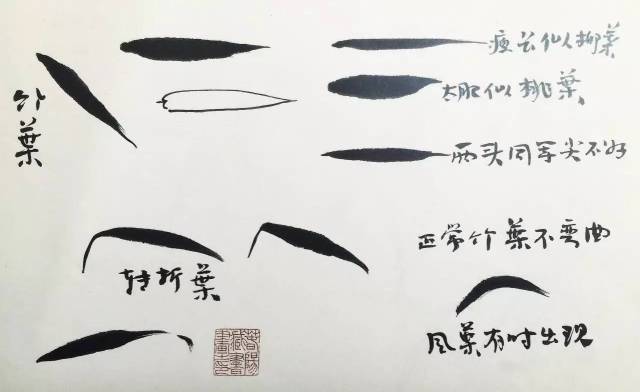 竹葉
瘦长似柳葉
太肥似桃葉
两头同等尖不好
正常竹葉不弯曲
转折葉
风葉有时出现